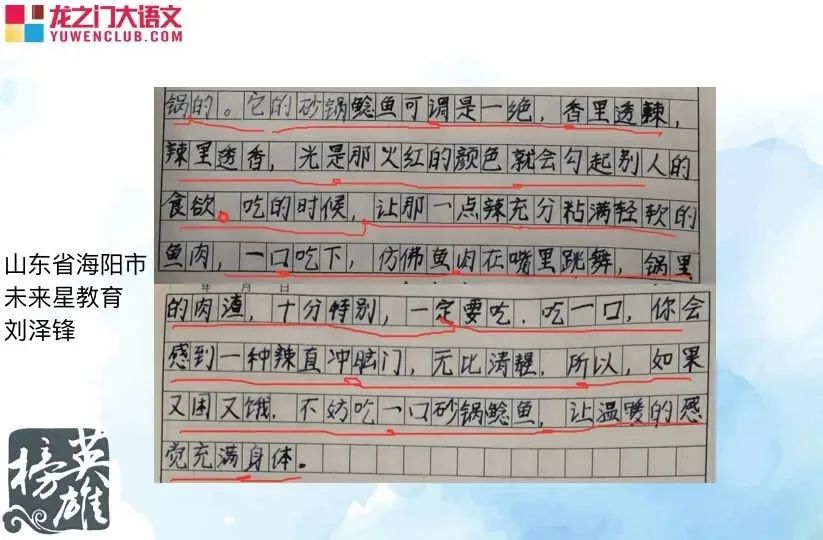 龙之门大语文
YUWENCLUB.COM
锅的。它的砂锅鲶鱼可谓是一绝，香里透辣，
辣里透香，光是那火红的颜色就会勾起别人的
食欲。吃的时候，让那一点辣充分粘满轻软的
鱼肉，一口吃下，仿佛鱼肉在嘴里跳舞，锅里
年 月 日
的肉渣，十分特别，一定要吃．吃一口，你会
感到一种辣直冲脑门，无比清醒．所以，如果
又困又饿．不妨吃一口砂锅鲶鱼，让温暖的感
觉充满身体。
山东省海阳市
未来星教育
刘泽锋
英雄榜